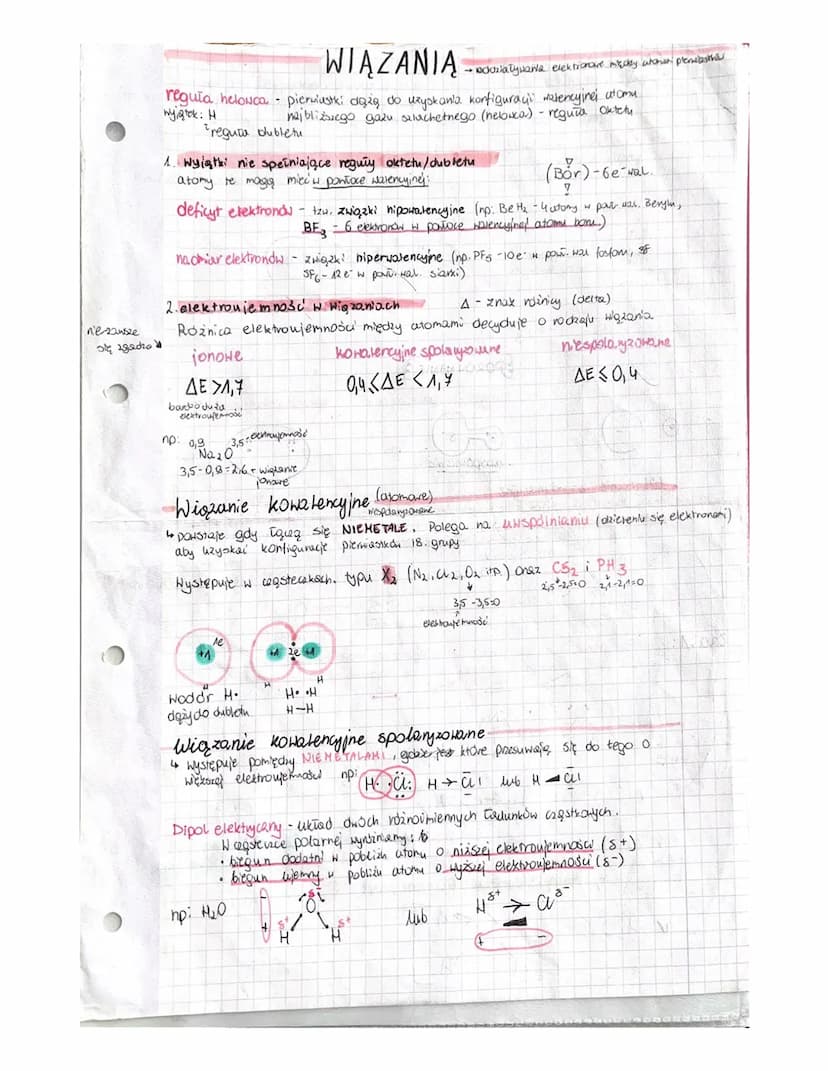 WIĄZANIA → oddziaływania elektronowe między atomami pierwiastków
reguła helowca - pierwiastki dążą do uzyskania konfiguracji walencyjnej atomu
wyjątek: H najbliższego gazu szlachetnego (helowca) - reguła oktetu
reguła dubletu
1. Wyjątki nie spełniające reguły oktetu/dubletu
atomy te mogą mieć w powłoce walencyjnej:
(Bór) - 6e⁻ wal.
deficyt elektronów - tzw. związki hipowalencyjne (np. BeH₂ - 4 atomy w pow. wal. berylu,
BF₃ - 6 elektronów w powłoce walencyjnej atomu boru)
nadmiar elektronów - związki hiperwalencyjne (np. PF₅ - 10e⁻ w pow. wal. fosforu,
SF₆ - 12e⁻ w pow. wal. siarki)
2. elektroujemność w wiązaniach Δ - znak różnicy (delta)
Różnica elektroujemności między atomami decyduje o rodzaju wiązania
nie zawsze
się zgadza
jonowe kowalencyjne spolaryzowane niespolaryzowane
ΔE > 1,7 0,4 ≤ ΔE < 1,7 ΔE ≤ 0,4
bardzo duża
elektroujemność
np: 0,9 3,5 - elektroujemność
Na₂O
3,5 - 0,9 = 2,6 + wiązanie
jonowe
Wiązanie kowalencyjne (atomowe)
niespolaryzowane
↳ powstaje gdy łączą się NIEMETALE. Polega na uwspólnianiu (dzieleniu się elektronami)
aby uzyskać konfigurację pierwiastków 18. grupy
Występuje w cząsteczkach typu X₂ (N₂, Cl₂, O₂ itp.) oraz CS₂ i PH₃
2,5-2,5=0 2,1-2,1=0
3,5-3,5=0
elektroujemność
1e
+1 +1 2e +1
H H H
wodór H• H• •H
dąży do dubletu H-H
Wiązanie kowalencyjne spolaryzowane
↳ występuje pomiędzy NIEMETALAMI, które przesuwają się do tego o
większej elektroujemności np: H• •Cl: H → Cl lub H ◄ Cl
Dipol elektryczny - układ dwóch różnoimiennych ładunków cząstkowych.
W cząsteczce polarnej wyróżniamy:
• biegun dodatni w pobliżu atomu o niższej elektroujemności (δ+)
• biegun ujemny w pobliżu atomu o wyższej elektroujemności (δ-)
np: H₂O - + δ- O δ+ H δ+ H lub H^δ+ → Cl^δ-
+ -